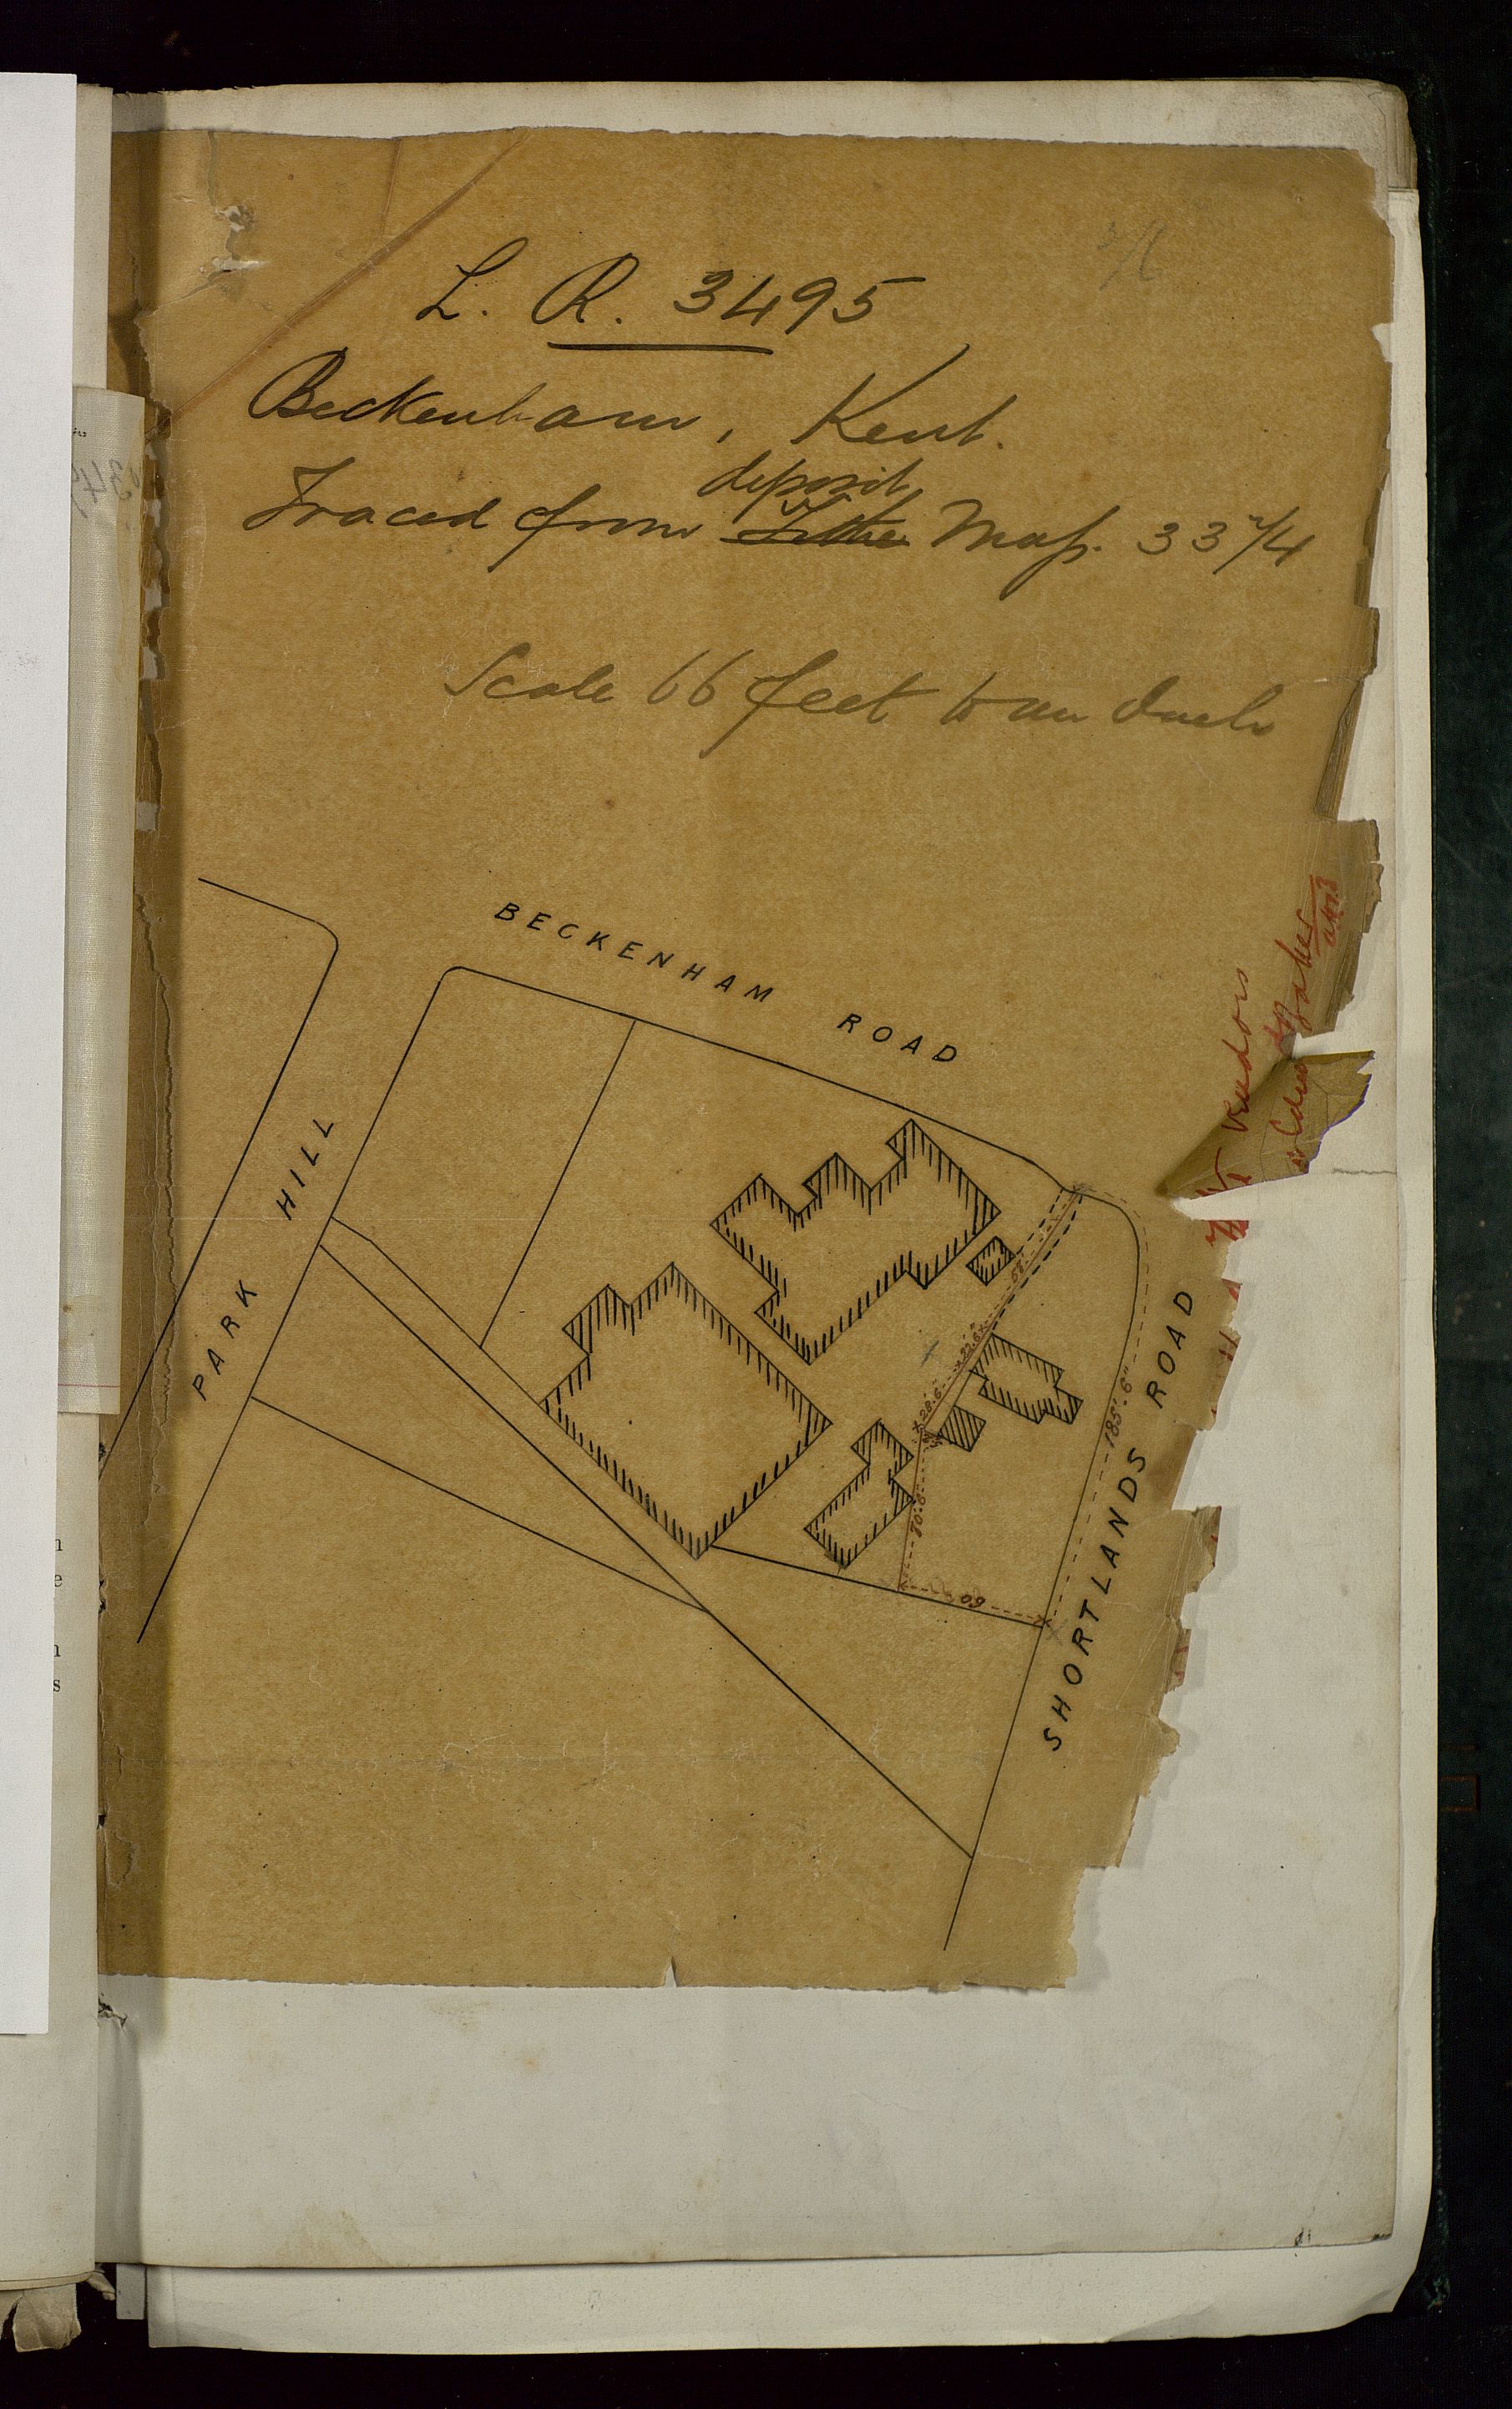 L. R. 3495
Beckenham, Kent.
deposit
Traced from Tithe Map. 33"/4
Scale 66 feet to an Inch
BECKENHAM ROAD
PARK HILL
SHORTLANDS ROAD
185'. 6"
28.6
70.6
60
Vendors
Baker